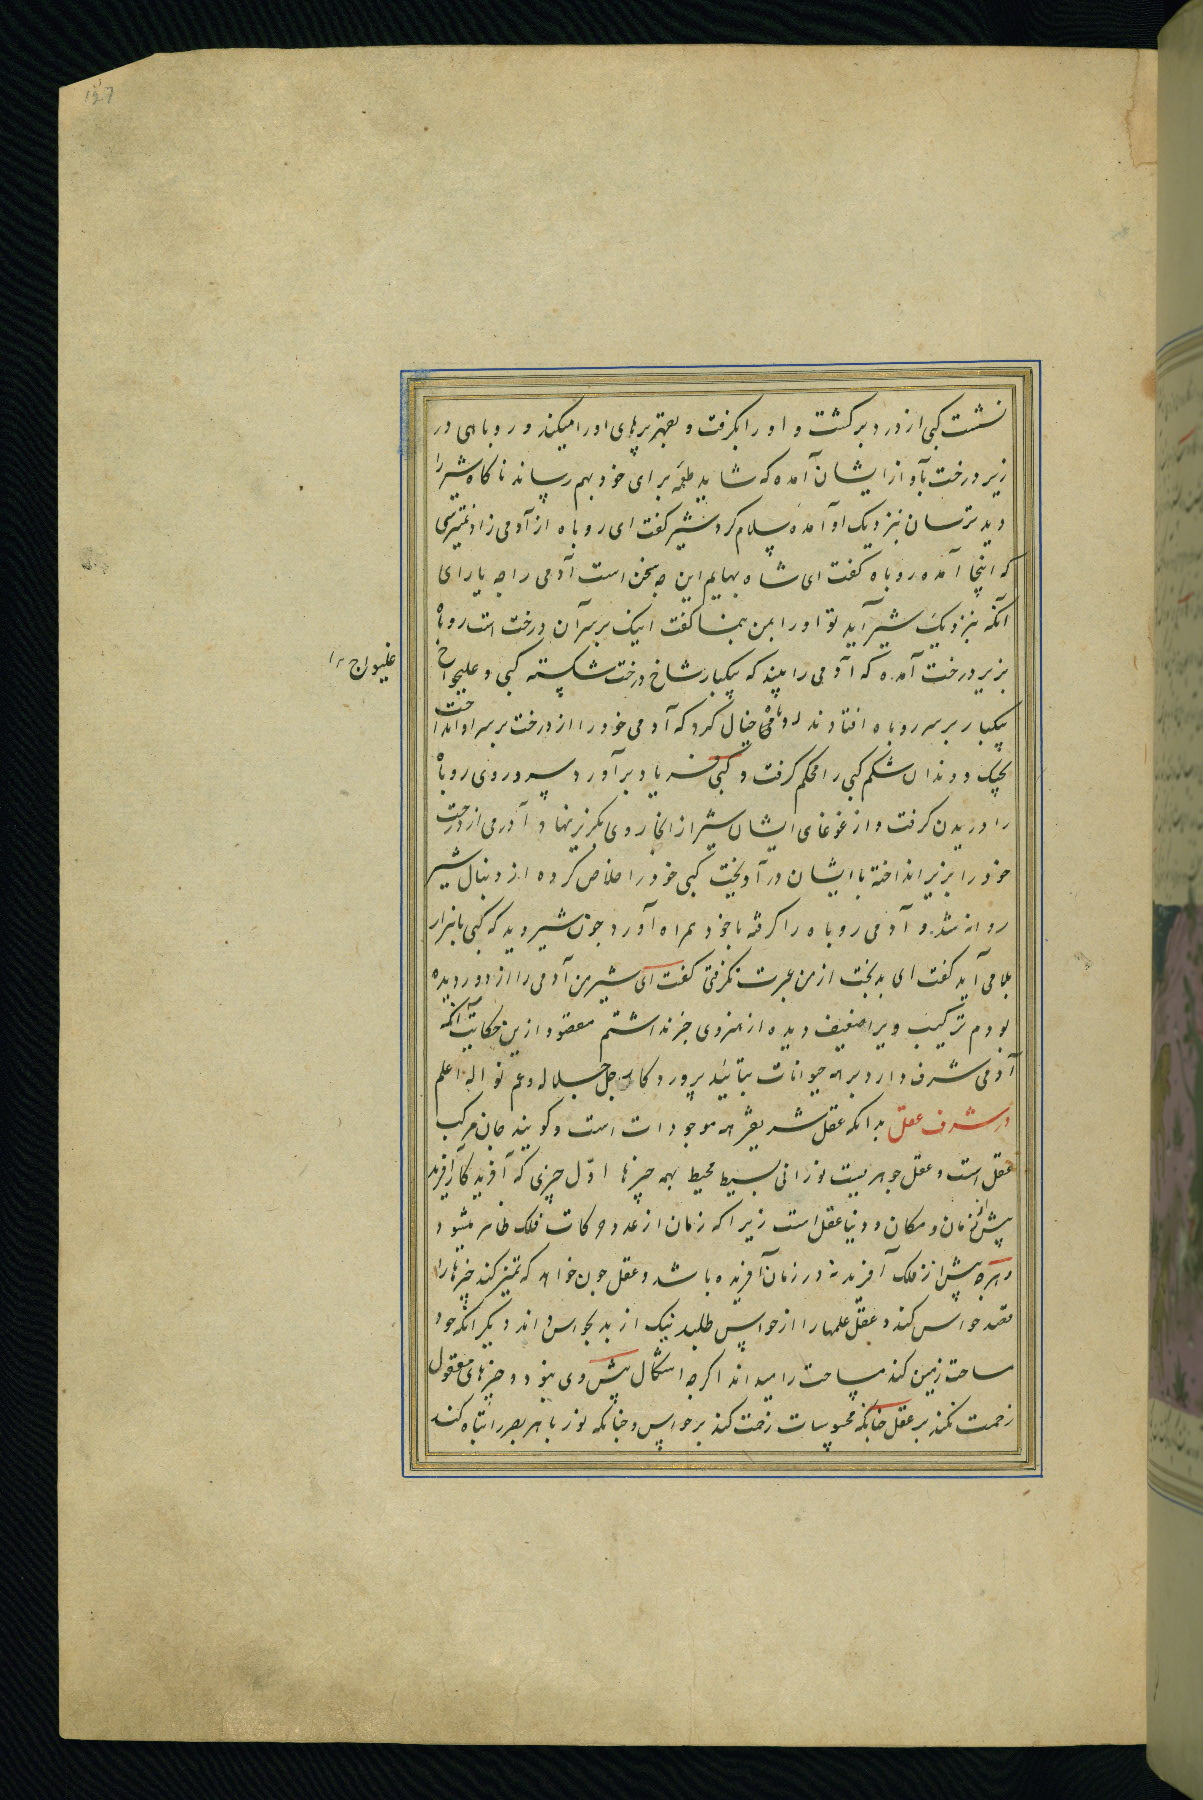 127
نشست کپی از درد برکشت و او را بکرفت و بعهتر پرهای او را میکند و روباهی در
زیر درخت بآواز ایشان آمده که شاید طعمه برای خود بهم رساند ناکاه شیر را
دید ترسان بنزدیک او آمده سلام کرد شیر کفت ای روباه از آدمی زاد نمیترسی
که اینجا آمده روباه کفت ای شاه بهایم این چه سخن است آدمی را چه یارای
آنکه بنزدیک شیر آید تو او را بمن بنما کفت اینک بر سر آن درخت است روباه
بزیر درخت آمده که آدمی را ببیند که بیکبار شاخ درخت شکسته کپی و غلیواج
غلیواج
بیکبار بر سر روباه افتادند روباه خیال کرد که آدمی خود را از درخت بر سر او انداخت
بچنک و دندان شکم کپی را محکم کرفت و کپی فریاد برآورد سر و روی روباه
را دریدن کرفت و از غوغای ایشان شیر از آنجا روی بکریز نهاد و آدمی از درخت
خود را بزیر انداخته با ایشان درآویخت کپی خود را خلاص کرده از دنبال شیر
روانه شد و آدمی روباه را کرفته با خود همراه آورد چون شیر دید که کپی با هزار
بلا می آید کفت ای بدبخت از من عبرت نکرفتی کفت ای شیر من آدمی را از دور دیده
بودم ترکیب ویرا ضعیف دیده از هنر وی خبر نداشتم مقصود ازین حکایت آنکه
آدمی شرف دارد بر همه حیوانات بتائید پروردکار جل جلاله و عم نواله اعلم
در شرف عقل بدانکه عقل شریفتر همه موجودات است و کویند جان مرکب
عقل است و عقل جوهریست نورانی بسیط محیط بهمه چیزها اول چیزی که آفریدکار آفرید
پیش از زمان و مکان و دنیا عقل است زیرا که زمان از عدد حرکات فلک ظاهر میشود
و هرچه پیش از فلک آفریدند در زمان آفریده باشد و عقل چون خواهد که تمیز کند چیزها را
قصد حواس کند و عقل علمها را از حواس طلبد نیک از بد بحواس داند دیکر آنکه خود
مساحت زمین کند مساحت را میداند اکرچه اشکال پیش وی بود و چیزهای معقول
زحمت نکند بر عقل چنانکه محسوسات زحمت کند بر حواس و چنانکه نور باهر بصر را تباه کند